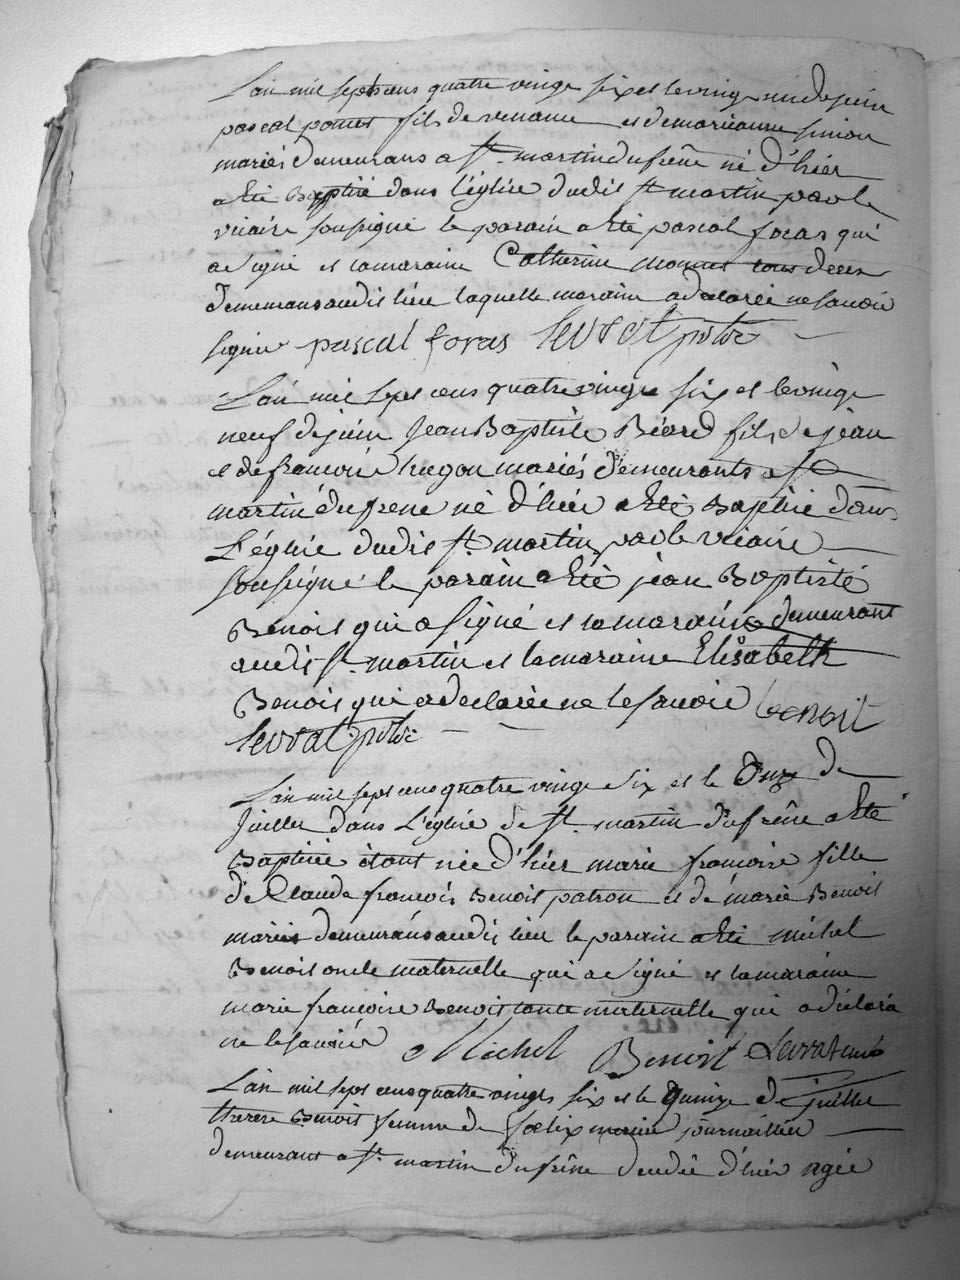 L'an mil sept cens quatre vingt six et le vingt un de juin
pascal fils de et de marianne simion
mariés demeurans a St. martin du frêne né d'hier
a été Baptisé dans l'église dudit St martin par le
vicaire sousigné le parain a été pascal foras qui
a signé et la maraine Catherine tous deux
demeurans audit lieu laquelle maraine a declarée ne savoir
signer pascal foras
L'an mil sept cens quatre vingt six et le vingt
neuf de juin Jean Baptiste Béard fils de jean
et de françoise hugon mariés demeurants a St
martin du frene né d'hier a été Baptisé dans
L'église dudit St. martin par le vicaire
sousigné le parain a été jean Baptiste
Benoit qui a signé et la maraine demeurant
audit St martin et la maraine Elisabeth
Benoit qui a declarée ne le savoir benoit
L'an mil sept cens quatre vingt six et le Onze de
Juillet dans L'église de St. martin du frêne a été
Baptisée étant née d'hier marie françoise fille
de Claude françois Benoit patron et de marie Benoit
mariés demeurans audit lieu le parain a été michel
Benoit oncle maternelle qui a signé et la maraine
marie françoise Benoit tante maternelle qui a déclaré
ne le savoir Michel Benoit
L'an mil sept cens quatre vingts six et le quinze de juillet
therese Benoit femme de foelix journaillier
demeurant a St. martin du frêne decedée d'hier agée